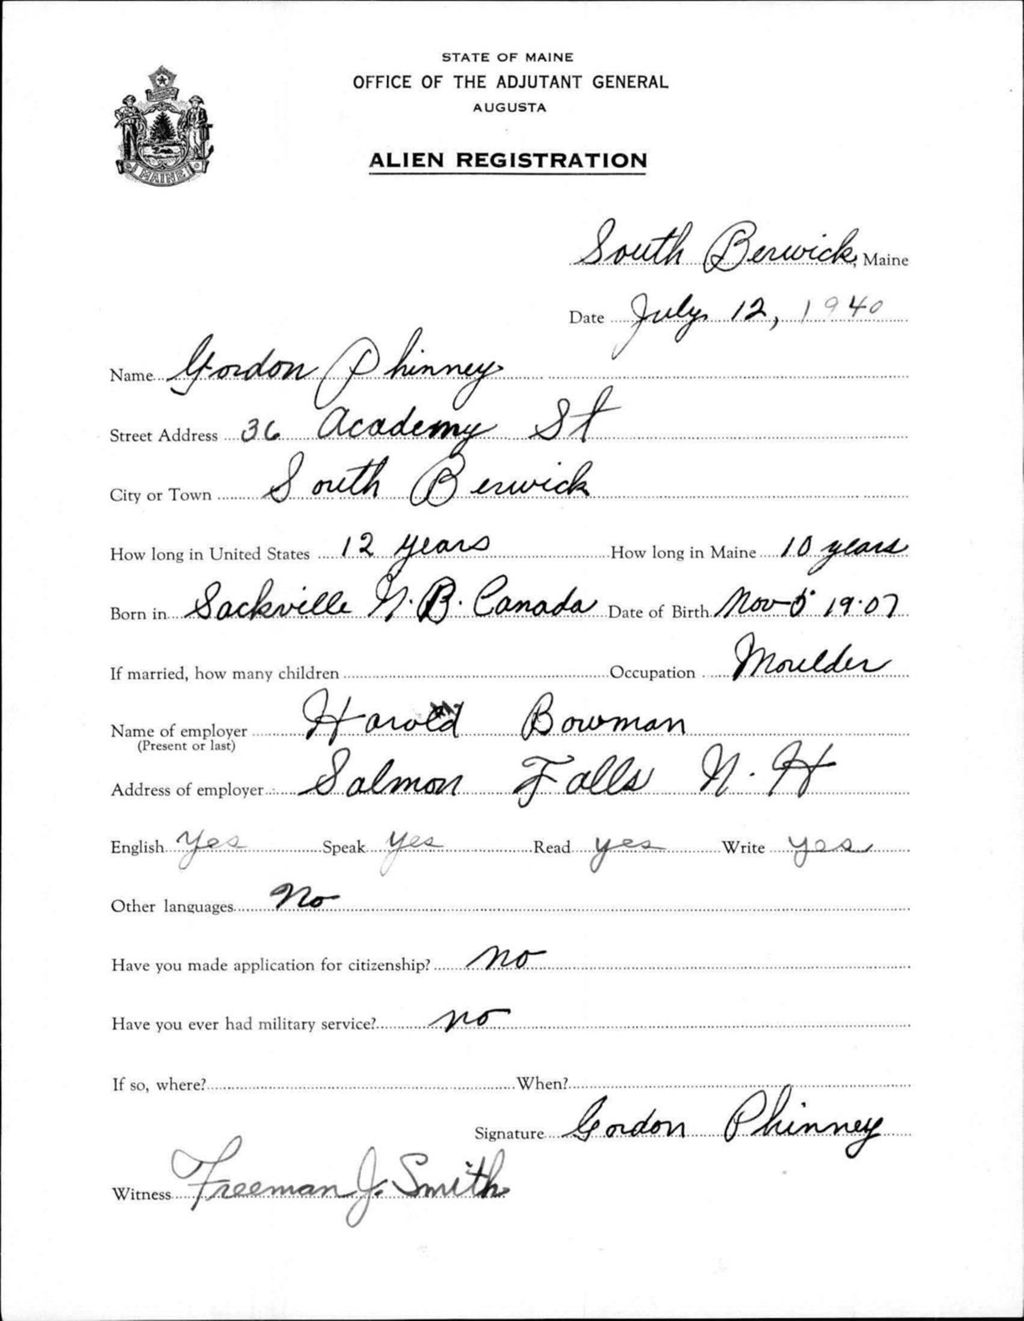 STATE OF MAINE
OFFICE OF THE ADJUTANT GENERAL
AUGUSTA
MAINE
ALIEN REGISTRATION
South Berwick, Maine
Date July 12, 1940
Name Gordon Phinney
Street Address 36 Academy St
City or Town South Berwick
How long in United States 12 years How long in Maine 10 years
Born in Sackville N.B. Canada Date of Birth Nov 5 1907
If married, how many children Occupation Moulder
Name of employer Harold Bowman
(Present or last)
Address of employer Salmon Falls N.H
English Yes Speak Yes Read yes Write yes
Other languages No
Have you made application for citizenship? no
Have you ever had military service? no
If so, where? When?
Signature Gordon Phinney
Witness Freeman J. Smith